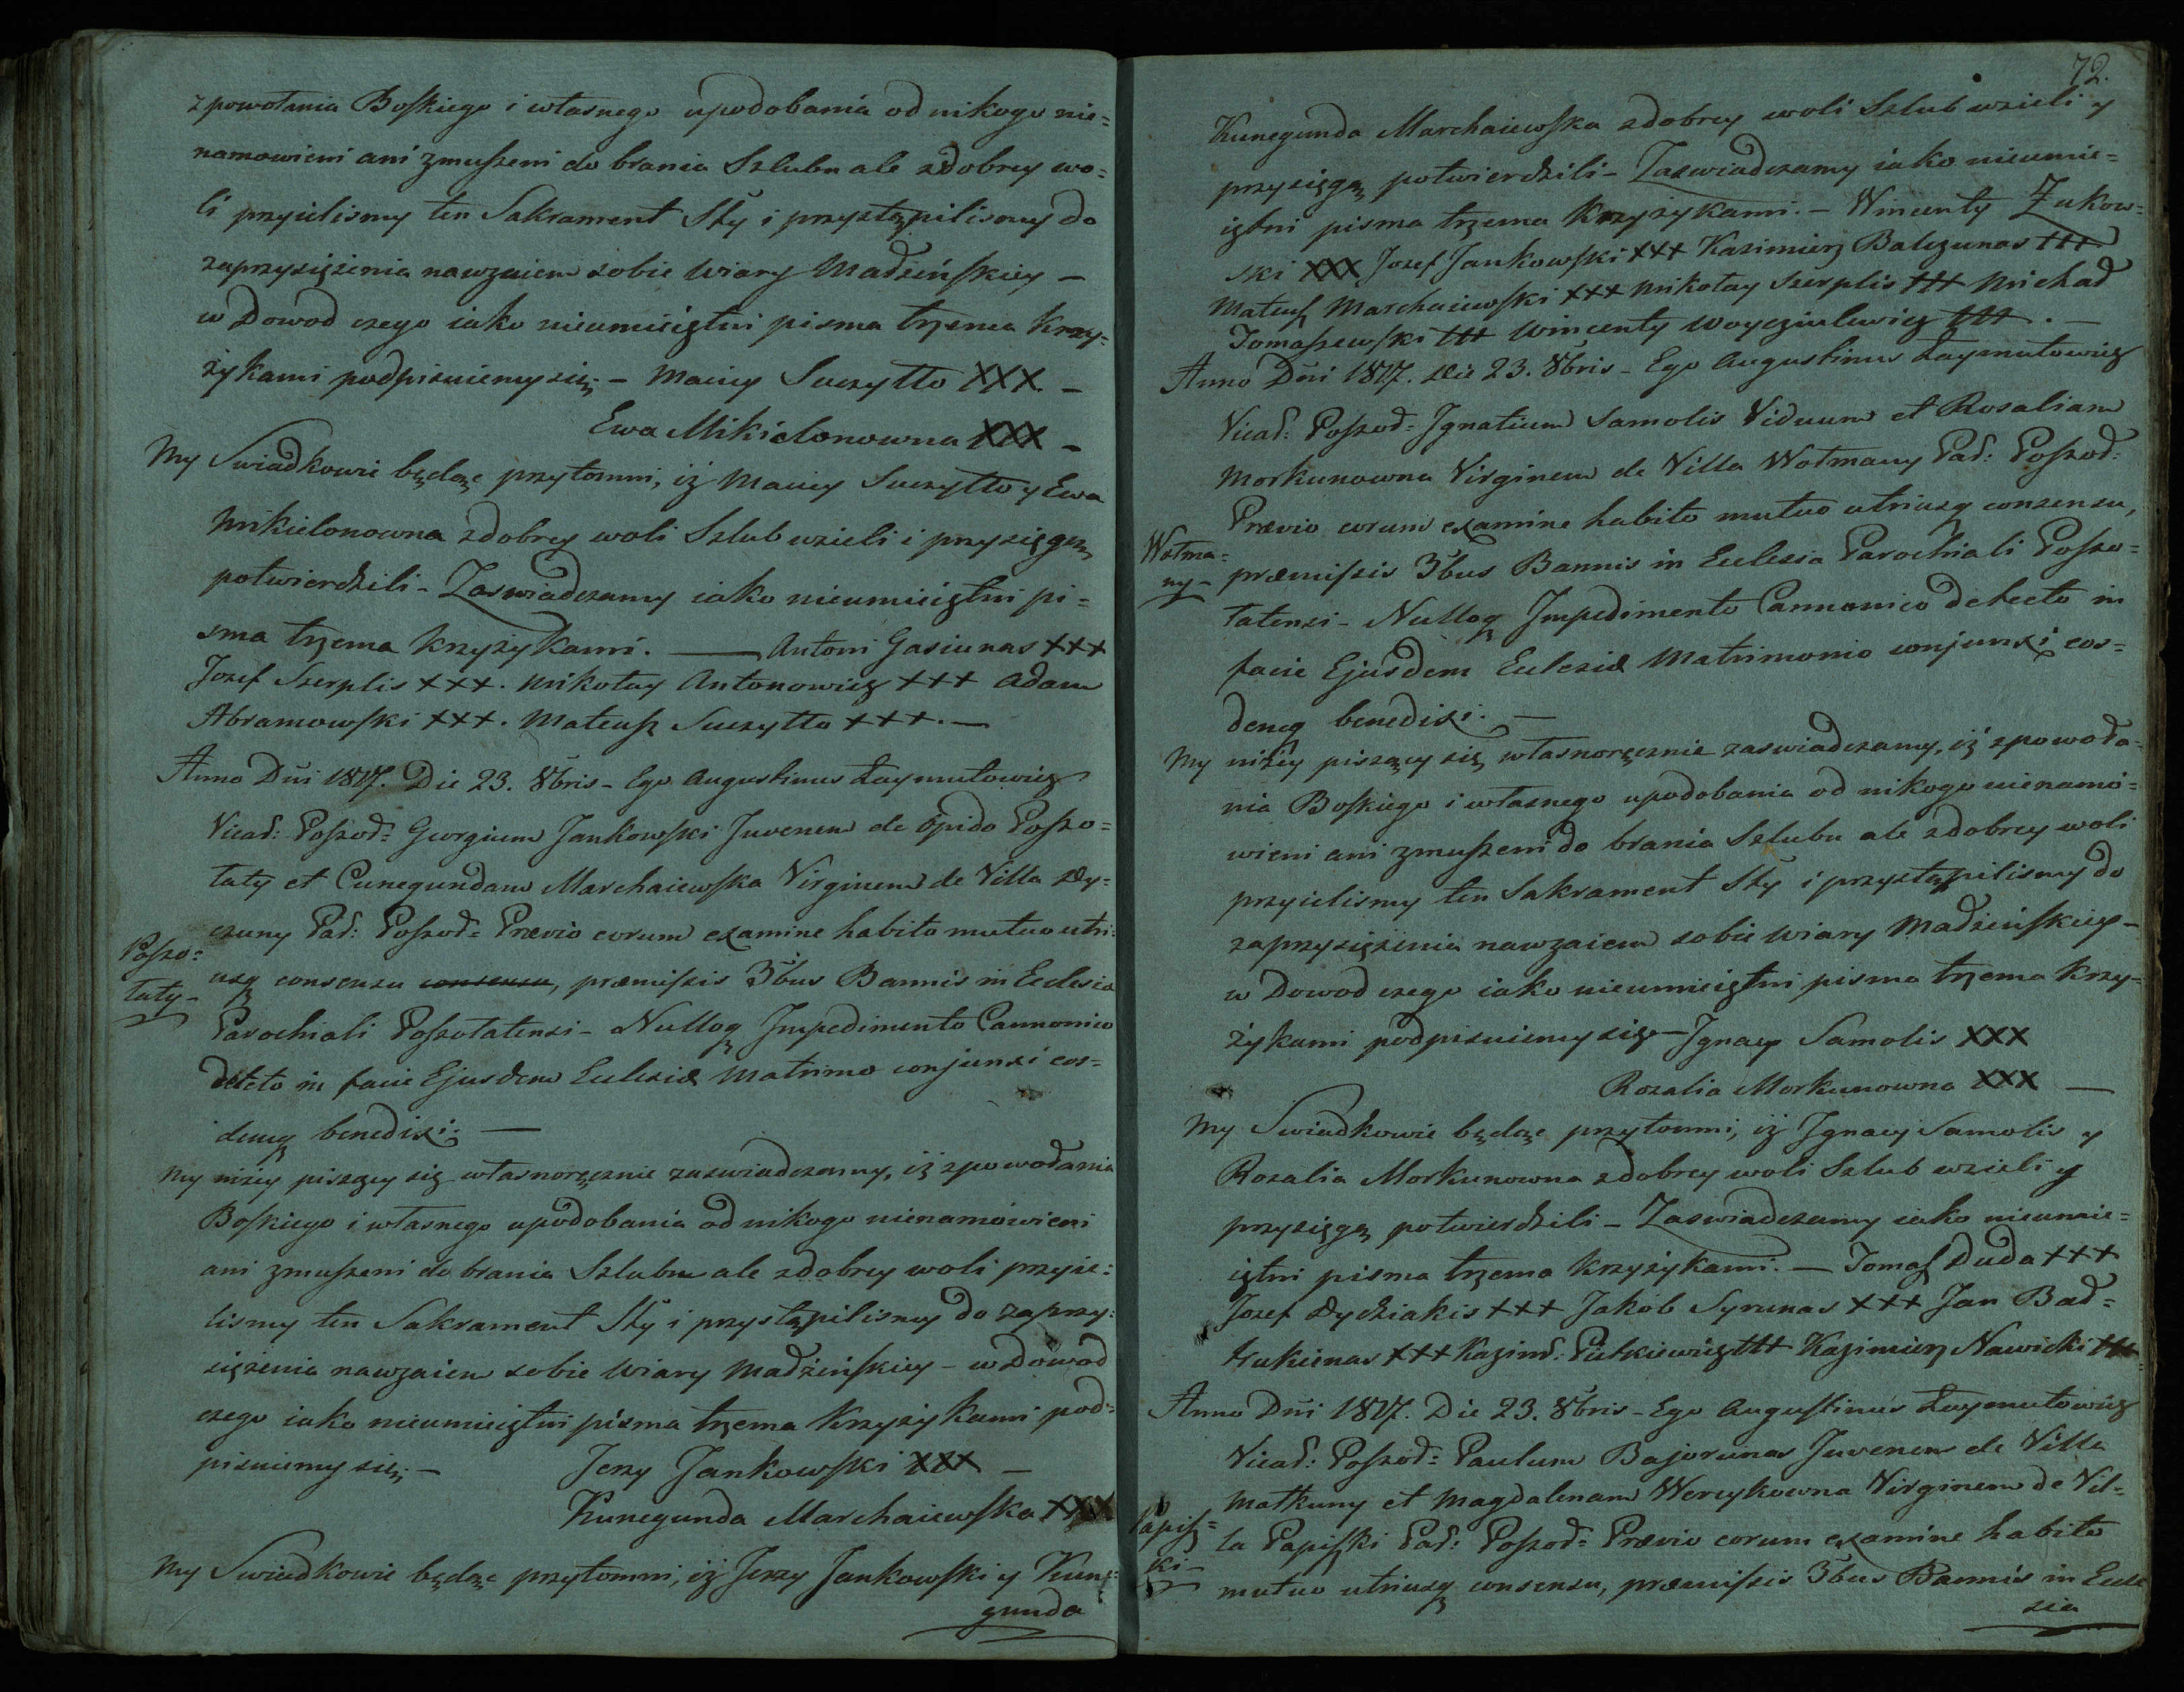 z powołania Boskiego i własnego upodobania od nikogo nie=
namowieni ani zmuszeni do brania Szlubu ale z dobrey wo=
li przyielismy ten Sakrament Sty i przystąpilismy do
zaprzysiężenia nawzaiem sobie Wiary Madżeńskiey –
w Dowod czego iako nieumieiętni pisma trzema Krzy=
żykami podpisuiemy się – Maciey Suszytło XXX. –
Ewa Mikielonowna XXX –
My Swiadkowie będąc przytomni, iż Maciey Suszytło y Ewa
Mikielonowna z dobrey woli Szlub wzieli i przysięgą
potwierdzili – Zaswiadczamy iako nieumieiętni pi=
sma trzema krzyżykami. — Antoni Gasiunas +++
Jozef Szerplis +++. Mikołay Antonowicz +++ Adam
Abramowski +++. Mateusz Suszytło +++. —
Anno Dni 1817. Die 23. 8bris – Ego Augustinus Łaymutowicz
Vicad: Poszod= Georgium Jankowski Juvenem de Opido Poszo=
taty et Cunegundam Marchaiewska Virginem de Villa Dy=
czuny Pad: Poszod= Prævio eorum examine habito mutuo utri=
Poszo=
taty –
usq consensu consensu, præmissis 3bus Bannis in Eclesia
Parochiali Poszotatensi – Nulloq Impedimento Cannonico
detcto in facie Ejusdem Eclesiæ Matrimo conjunxi eos=
demq benedixi. —
My niżey piszący się własnoręcznie zaswiadczamy, iż z powodania
Boskiego i własnego upodobania od nikogo nienamówieni
ani zmuszeni do brania Szlubu ale z dobrey woli przyie=
lismy ten Sakrament Sty i przystąpilismy do zaprzy=
siężenia nawzaiem sobie Wiary Madżeńskiey – w Dowod
czego iako nieumieiętni pisma trzema Krzyżykami pod=
pisuiemy się. – Jerzy Jankowski XXX –
Kunegunda Marchaiewska XXX
My Swiadkowie będąc przytomni, iż Jerzy Jankowski y Kune=
gunda
72.
Kunegunda Marchaiewska z dobrey woli Szlub wzieli y
przysięgą potwierdzili – Zaswiadczamy iako nieumie=
iętni pisma trzema Krzyżykami. – Wincenty Żukow=
ski XXX Jozef Jankowski +++ Kazimierz Balczunas +++
Mateusz Marchaiewski +++ Mikołay Szerplis +++ Michad
Tomaszewski +++ Wincenty Woyciulewicz +++. —
Anno Dni 1817. Die 23. 8bris – Ego Augustinus Łaymutowicz
Vicad: Poszod= Ignatium Samolis Viduum et Rosaliam
Morkunowna Virginem de Villa Wołmany Pad: Poszod:
Prævio eorum examine habito mutuo utriusq consensu,
Wołma=
ny –
præmissis 3bus Bannis in Eclesia Parochiali Poszo=
tatensi – Nulloq Impedimento Cannonico detecto in
facie Ejusdem Eclesiæ Matrimonio conjunxi eos=
demq benedixi. —
My niżey piszący się własnoręcznie zaswiadczamy, iż z powoda=
nia Boskiego i własnego upodobania od nikogo nienamó=
wieni ani zmuszeni do brania Szlubu ale z dobrey woli
przyielismy ten Sakrament Sty i przystąpilismy do
zaprzysiężenia nawzaiem sobie Wiary Madżeńskiey –
w Dowod czego iako nieumieiętni pisma trzema Krzy=
żykami podpisuiemy się – Ignacy Samolis XXX
Rozalia Morkunowna XXX —
My Swiadkowie będąc przytomni, iż Ignacy Samolis y
Rozalia Morkunowna z dobrey woli Szlub wzieli y
przysięgą potwierdzili – Zaswiadczamy iako nieumie=
iętni pisma trzema Krzyżykami. — Tomasz Duda +++
Jozef Dydziakis +++ Jakób Syrunas +++ Jan Bad=
trukienas +++ Kazimd: Pietkiewicz +++ Kazimierz Nawicki +++
Anno Dni 1817. Die 23. 8bris – Ego Augustinus Łaymutowicz
Vicad: Poszod= Paulum Bajorunas Juvenem de Villa
Małkuny et Magdalenam Wereykowna Virginem de Vil=
Papisz=
ki –
la Papiszki Pad: Poszod= Prævio eorum examine habito
mutuo utriusq consensu, præmissis 3bus Bannis in Ecle
sia